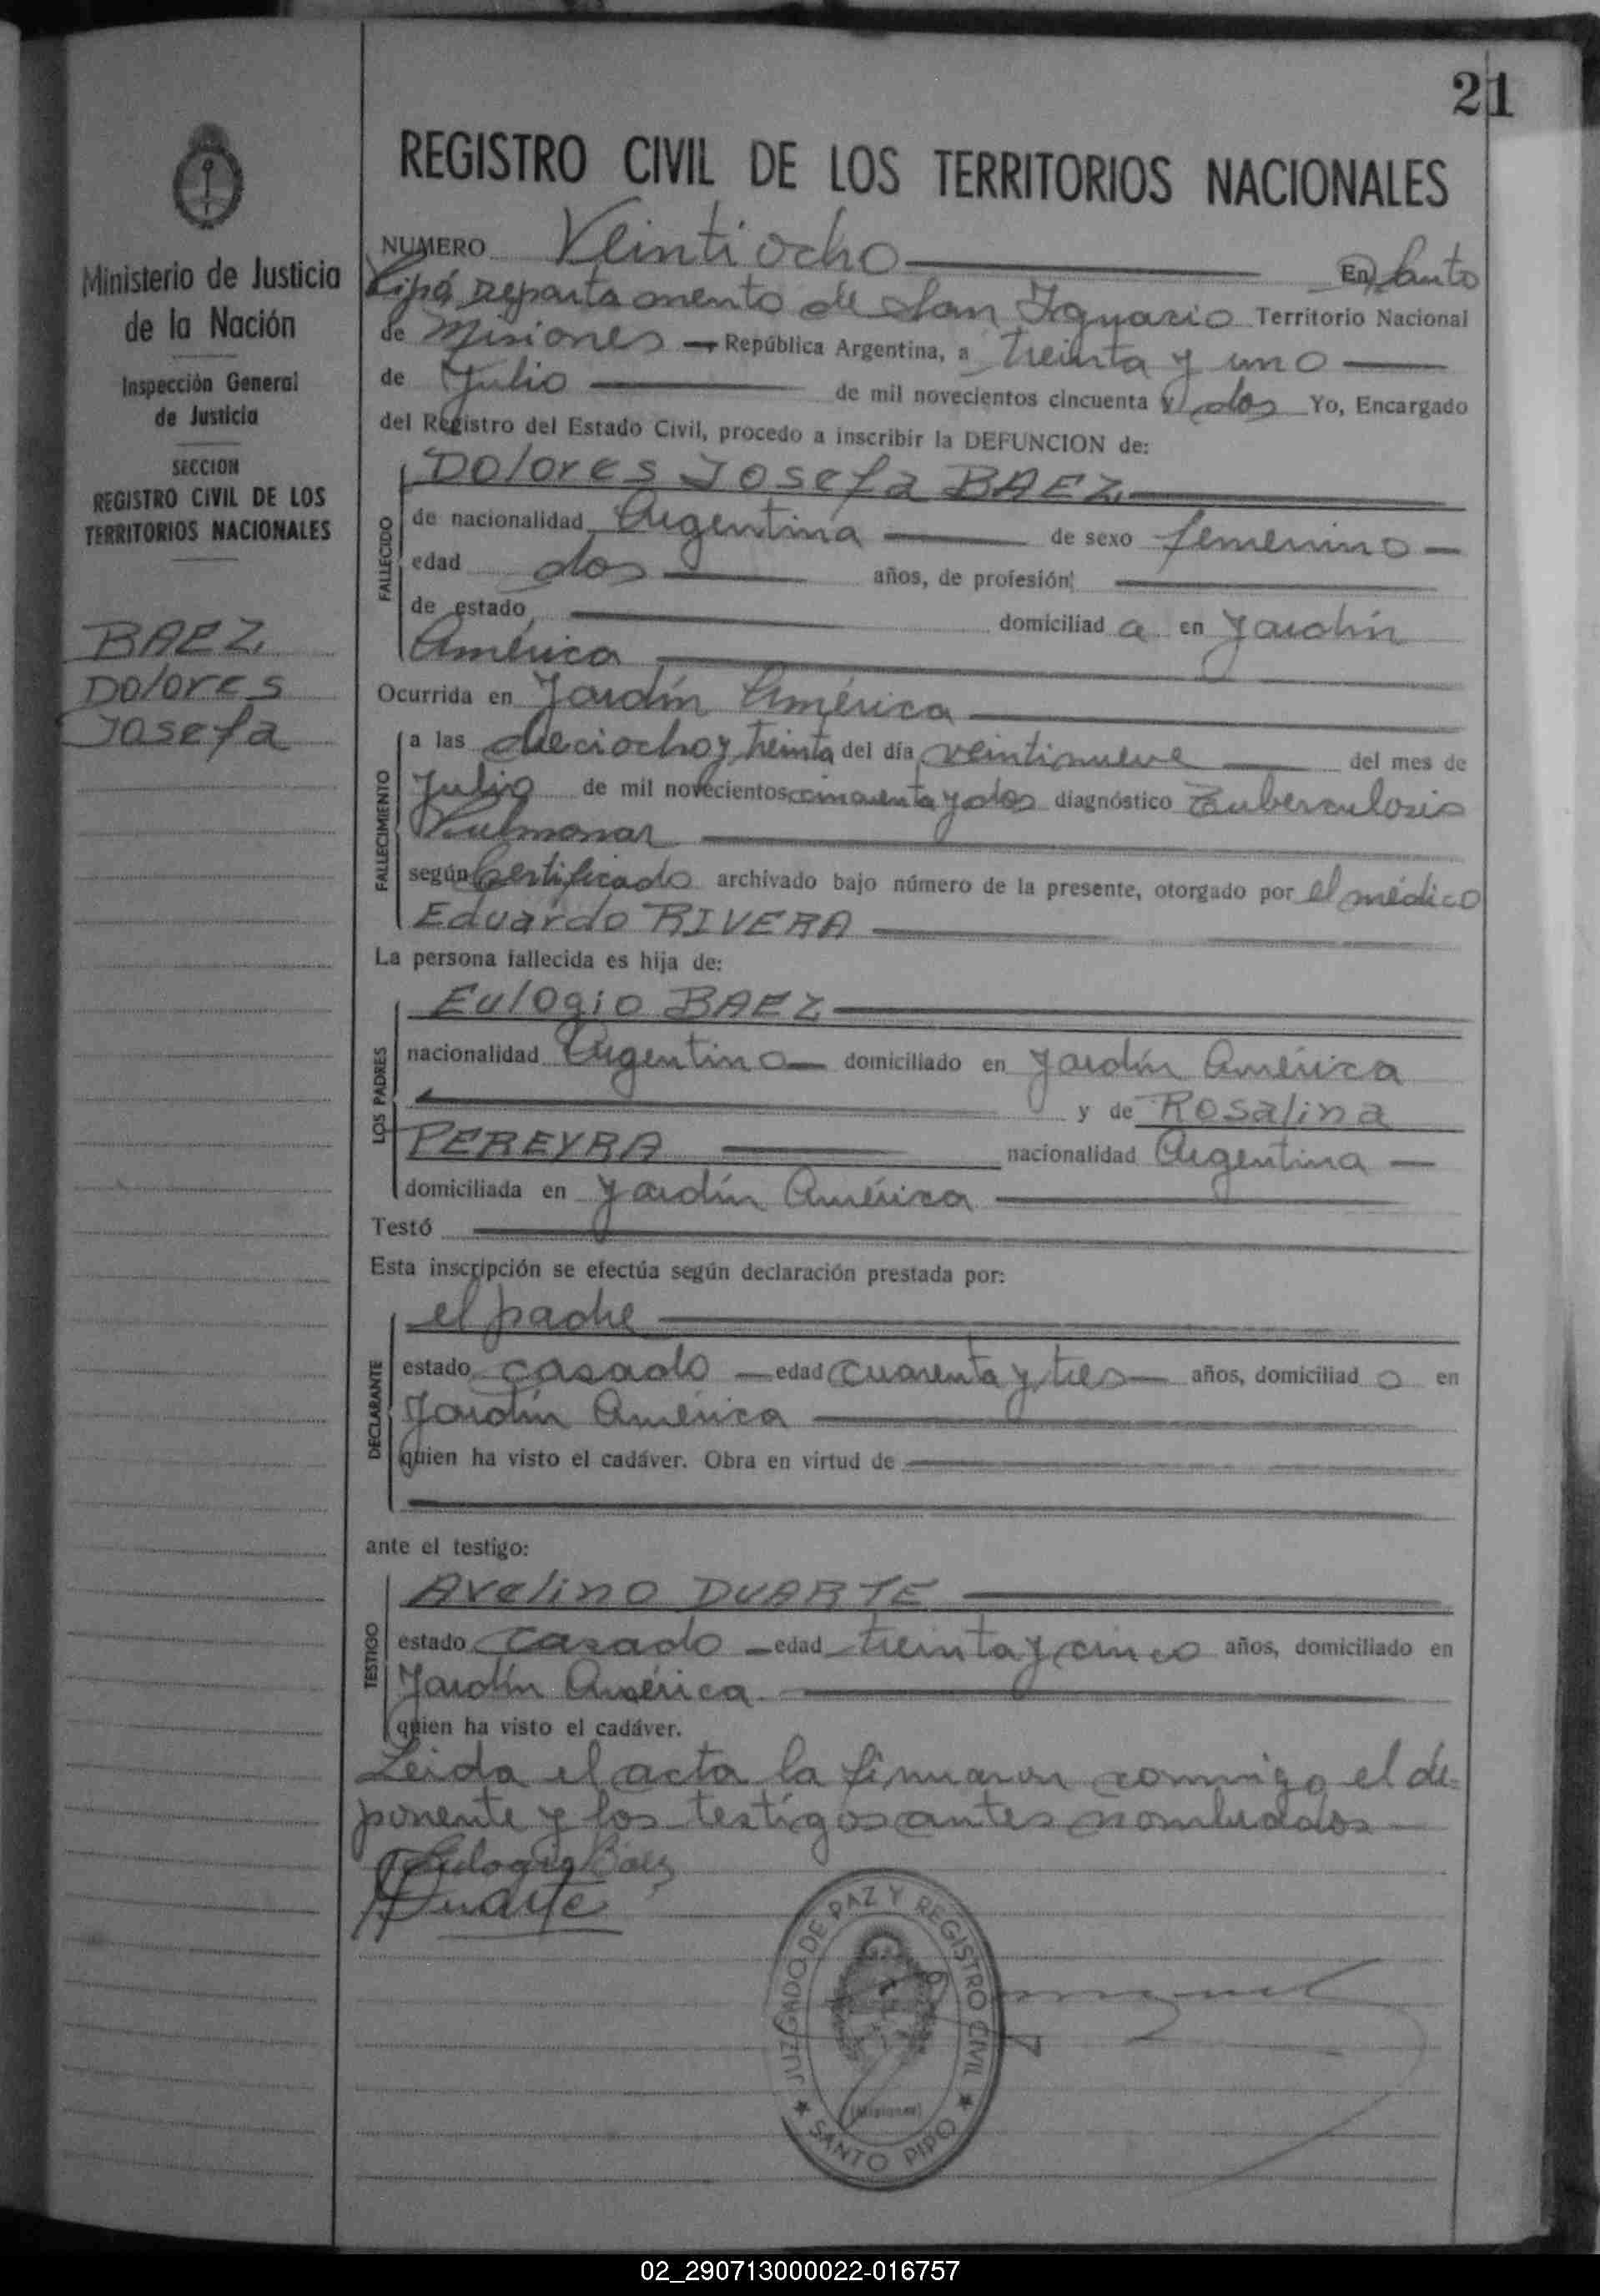 21
REGISTRO CIVIL DE LOS TERRITORIOS NACIONALES
Ministerio de Justicia
de la Nación
Inspección General
de Justicia
SECCION
REGISTRO CIVIL DE LOS
TERRITORIOS NACIONALES
BAEZ
Dolores
Josefa
NUMERO Veintiocho En Santo
Pipó Departamento de San Ignacio Territorio Nacional
de Misiones República Argentina, a treinta y uno
de Julio de mil novecientos cincuenta y dos Yo, Encargado
del Registro del Estado Civil, procedo a inscribir la DEFUNCION de:
Dolores Josefa BAEZ
FALLECIDO
de nacionalidad Argentina de sexo femenino
edad dos años, de profesión
de estado domiciliad a en Jardín
América
Ocurrida en Jardín América
FALLECIMIENTO
a las dieciocho y treinta del día veintinueve del mes de
Julio de mil novecientos cincuenta y dos diagnóstico Tuberculosis
Pulmonar
según Certificado archivado bajo número de la presente, otorgado por el médico
Eduardo RIVERA
La persona fallecida es hija de:
LOS PADRES
Eulogio BAEZ
nacionalidad Argentino domiciliado en Jardín América
y de Rosalina
PEREYRA nacionalidad Argentina
domiciliada en Jardín América
Testó
Esta inscripción se efectúa según declaración prestada por:
DECLARANTE
el padre
estado casado edad cuarenta y tres años, domiciliad o en
Jardín América
quien ha visto el cadáver. Obra en virtud de
ante el testigo:
TESTIGO
Avelino DUARTE
estado casado edad treinta y cinco años, domiciliado en
Jardín América
quien ha visto el cadáver.
Leida el acta la firmaron conmigo el de=
ponente y los testigos antes nombrados
Eulogio Báez
Duarte
JUZGADO DE PAZ Y REGISTRO CIVIL
(Misiones)
★ SANTO PIPO ★
02_290713000022-016757